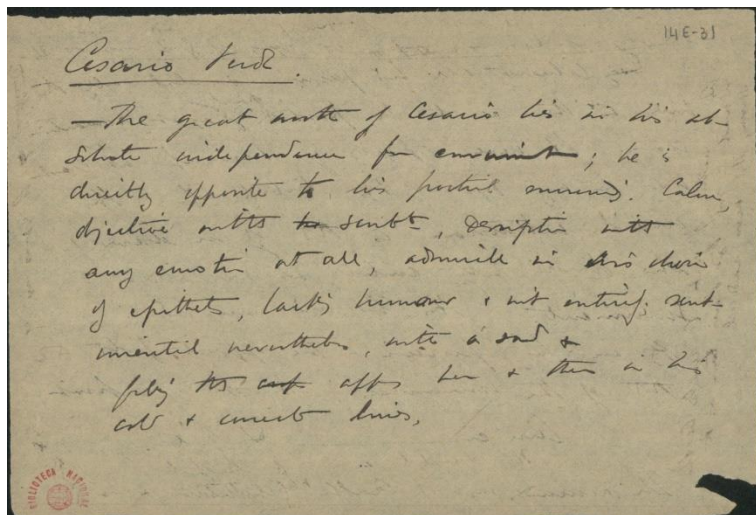 14E-31
Cesario Verde.
— The great worth of Cesario lies in his ab-
solute independence ; he is
directly opposite to his poetical . Calm,
objective , descriptive
any emotion at all, admirable in his choice
of epithets, lacking humour & not entirely sent-
imental nevertheless, with a sad &
here & there in his
cold & correct lines.
BIBLIOTECA NACIONAL